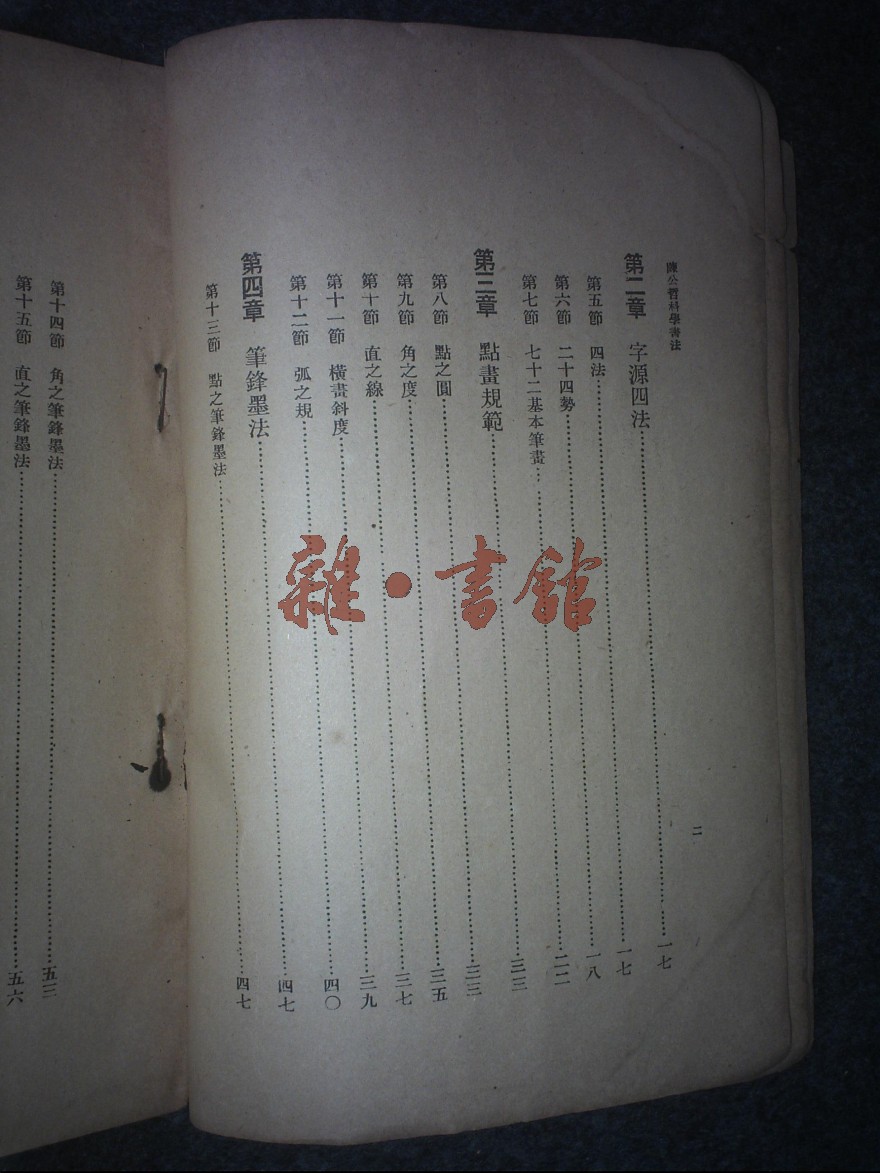 陳公哲科學書法
第二章 字源四法……一七
第五節 四法……一七
第六節 二十四勢……一八
第七節 七十二基本筆畫……二二
第三章 點畫規範……三三
第八節 點之圓……三三
第九節 角之度……三五
第十節 直之線……三七
第十一節 橫畫斜度……三九
第十二節 弧之規……四〇
第四章 筆鋒墨法……四七
第十三節 點之筆鋒墨法……四七
二
第十四節 角之筆鋒墨法……五三
第十五節 直之筆鋒墨法……五六
雜·書館